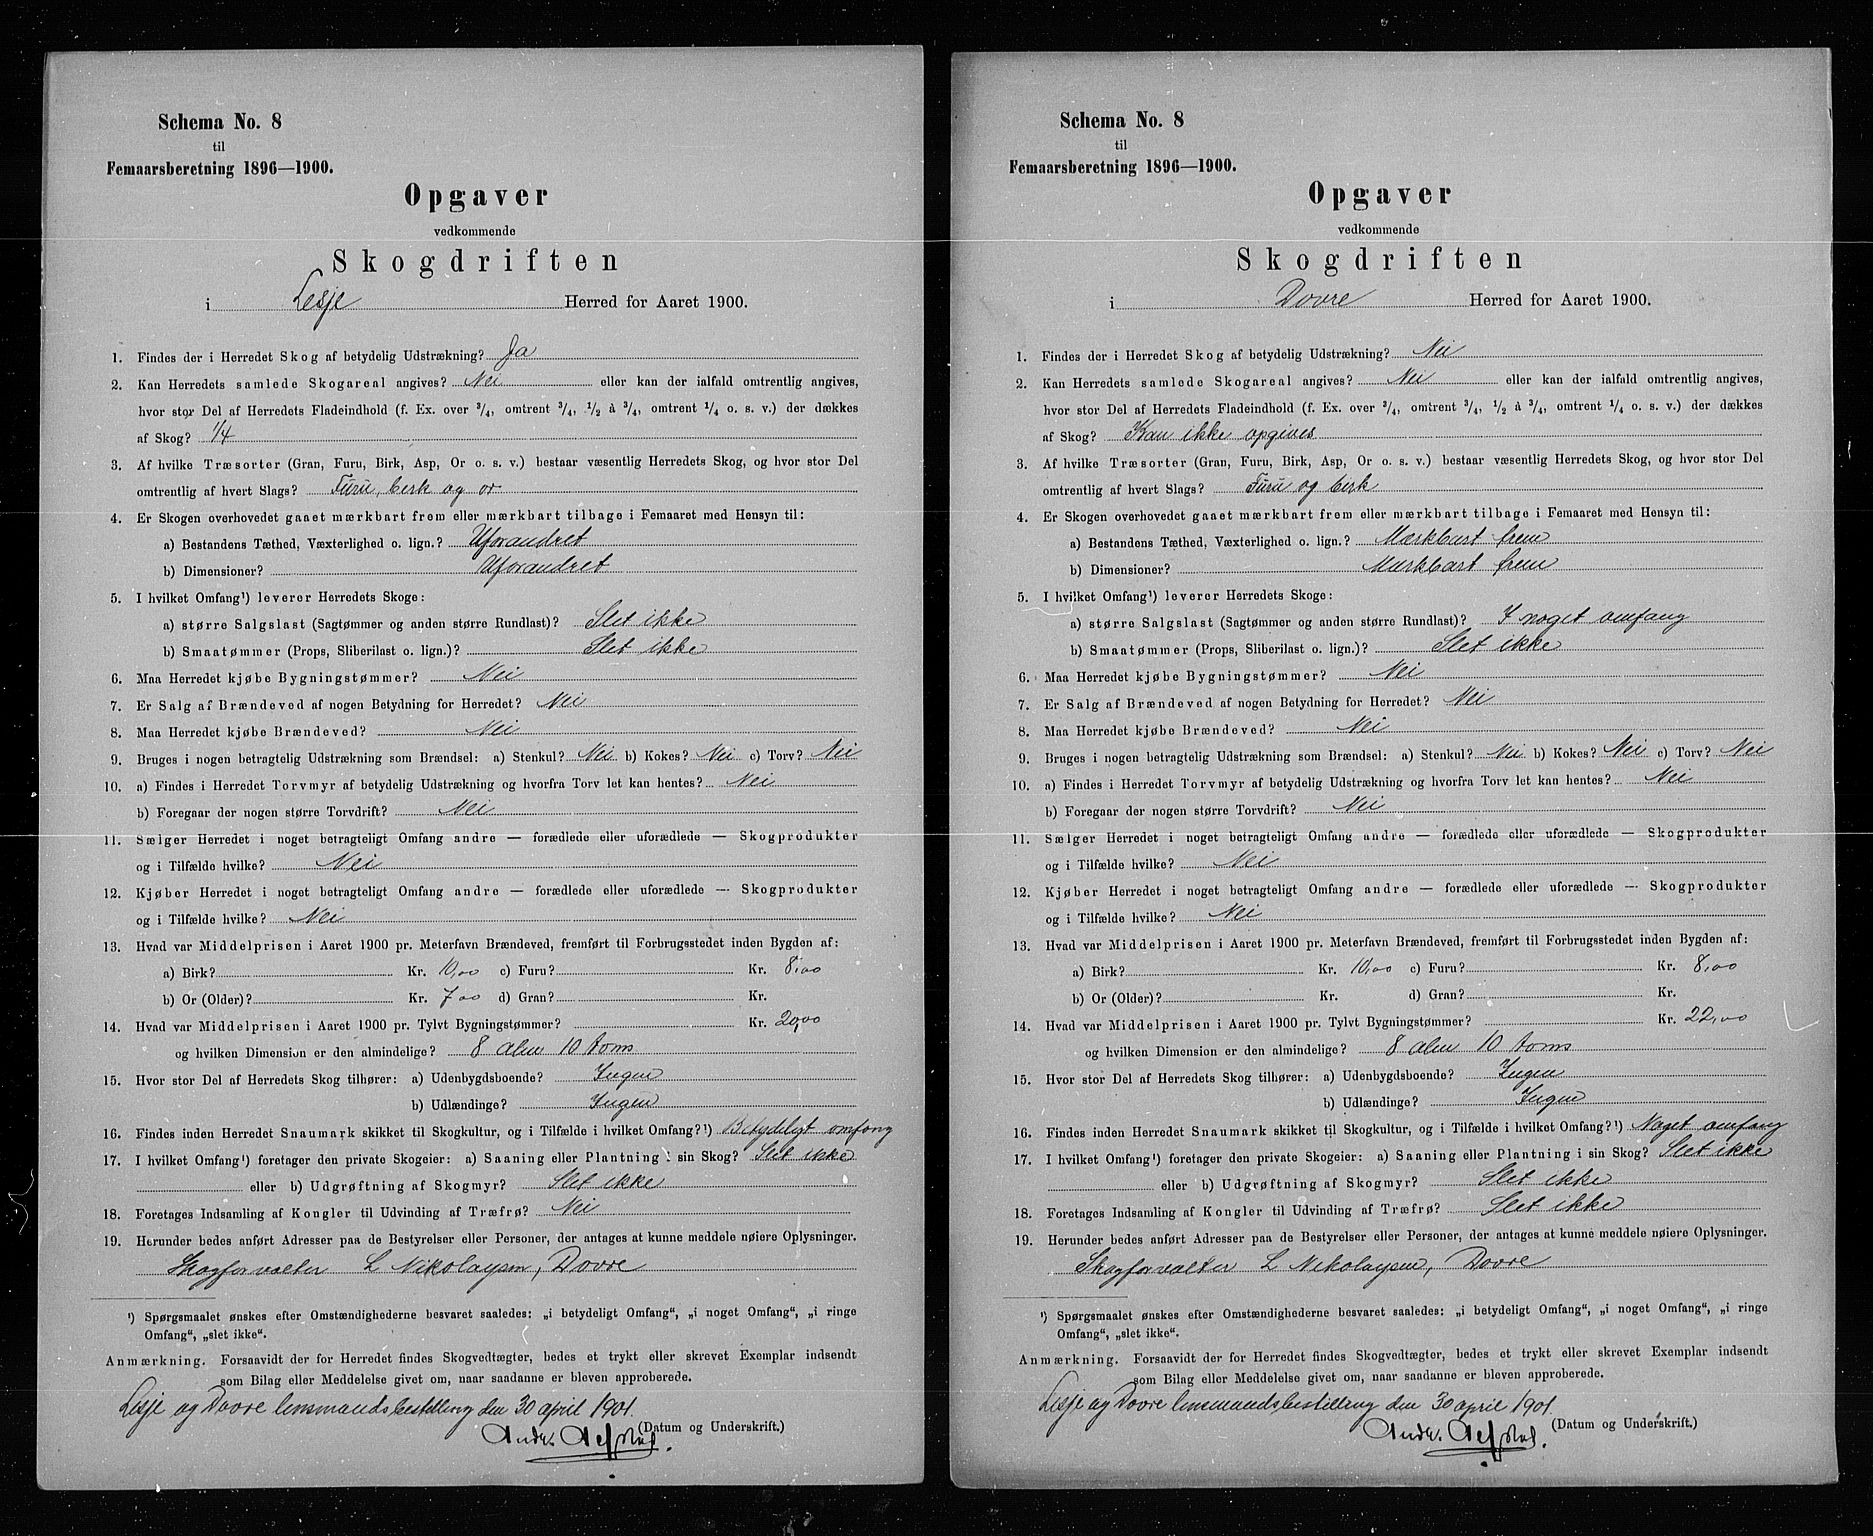 Schema No. 8
til
Femaarsberetning 1896—1900.
Opgaver
vedkommende
Skogdriften
i Lesje Herred for Aaret 1900.
1. Findes der i Herredet Skog af betydelig Udstrækning? Ja
2. Kan Herredets samlede Skogareal angives? Nei eller kan der ialfald omtrentlig angives,
hvor stor Del af Herredets Fladeindhold (f. Ex. over 3/4, omtrent 3/4, 1/2 à 3/4, omtrent 1/4 o. s. v.) der dækkes
af Skog? 1/4
3. Af hvilke Træsorter (Gran, Furu, Birk, Asp, Or o. s. v.) bestaar væsentlig Herredets Skog, og hvor stor Del
omtrentlig af hvert Slags? Furu, berk og or
4. Er Skogen overhovedet gaaet mærkbart frem eller mærkbart tilbage i Femaaret med Hensyn til:
a) Bestandens Tæthed, Væxterlighed o. lign.? Uforandret
b) Dimensioner? Uforandret
5. I hvilket Omfang¹) leverer Herredets Skoge:
a) større Salgslast (Sagtømmer og anden større Rundlast)? Slet ikke
b) Smaatømmer (Props, Sliberilast o. lign.)? Slet ikke
6. Maa Herredet kjøbe Bygningstømmer? Nei
7. Er Salg af Brændeved af nogen Betydning for Herredet? Nei
8. Maa Herredet kjøbe Brændeved? Nei
9. Bruges i nogen betragtelig Udstrækning som Brændsel: a) Stenkul? Nei b) Kokes? Nei c) Torv? Nei
10. a) Findes i Herredet Torvmyr af betydelig Udstrækning og hvorfra Torv let kan hentes? Nei
b) Foregaar der nogen større Torvdrift? Nei
11. Sælger Herredet i noget betragteligt Omfang andre — forædlede eller uforædlede — Skogprodukter
og i Tilfælde hvilke? Nei
12. Kjøber Herredet i noget betragteligt Omfang andre — forædlede eller uforædlede — Skogprodukter
og i Tilfælde hvilke? Nei
13. Hvad var Middelprisen i Aaret 1900 pr. Meterfavn Brændeved, fremført til Forbrugsstedet inden Bygden af:
a) Birk? Kr. 10,00 c) Furu? Kr. 8,00
b) Or (Older)? Kr. 7 00 d) Gran? Kr.
14. Hvad var Middelprisen i Aaret 1900 pr. Tylvt Bygningstømmer? Kr. 20,00
og hvilken Dimension er den almindelige? 8 alen 10 toms
15. Hvor stor Del af Herredets Skog tilhører: a) Udenbygdsboende? Ingen
b) Udlændinge? Ingen
16. Findes inden Herredet Snaumark skikket til Skogkultur, og i Tilfælde i hvilket Omfang?¹) Betydeligt omfang
17. I hvilket Omfang¹) foretager den private Skogeier: a) Saaning eller Plantning i sin Skog? Slet ikke
eller b) Udgrøftning af Skogmyr? Slet ikke
18. Foretages Indsamling af Kongler til Udvinding af Træfrø? Nei
19. Herunder bedes anført Adresser paa de Bestyrelser eller Personer, der antages at kunne meddele nøiere Oplysninger.
Skogforvalter L Nikolaysen, Dovre
¹) Spørgsmaalet ønskes efter Omstændighederne besvaret saaledes: „i betydeligt Omfang“, „i noget Omfang“, „i ringe
Omfang“, „slet ikke“.
Anmærkning. Forsaavidt der for Herredet findes Skogvedtægter, bedes et trykt eller skrevet Exemplar indsendt
som Bilag eller Meddelelse givet om, naar saadanne er bleven approberede.
Lesje og Dovre lensmandsbestilling den 30 april 1901.
(Datum og Underskrift.)
Schema No. 8
til
Femaarsberetning 1896—1900.
Opgaver
vedkommende
Skogdriften
i Dovre Herred for Aaret 1900.
1. Findes der i Herredet Skog af betydelig Udstrækning? Nei
2. Kan Herredets samlede Skogareal angives? Nei eller kan der ialfald omtrentlig angives,
hvor stor Del af Herredets Fladeindhold (f. Ex. over 3/4, omtrent 3/4, 1/2 à 3/4, omtrent 1/4 o. s. v.) der dækkes
af Skog? Kan ikke opgives
3. Af hvilke Træsorter (Gran, Furu, Birk, Asp, Or o. s. v.) bestaar væsentlig Herredets Skog, og hvor stor Del
omtrentlig af hvert Slags? Furu og berk
4. Er Skogen overhovedet gaaet mærkbart frem eller mærkbart tilbage i Femaaret med Hensyn til:
a) Bestandens Tæthed, Væxterlighed o. lign.? Mærkbart frem
b) Dimensioner? Mærkbart frem
5. I hvilket Omfang¹) leverer Herredets Skoge:
a) større Salgslast (Sagtømmer og anden større Rundlast)? I noget omfang
b) Smaatømmer (Props, Sliberilast o. lign.)? Slet ikke
6. Maa Herredet kjøbe Bygningstømmer? Nei
7. Er Salg af Brændeved af nogen Betydning for Herredet? Nei
8. Maa Herredet kjøbe Brændeved? Nei
9. Bruges i nogen betragtelig Udstrækning som Brændsel: a) Stenkul? Nei b) Kokes? Nei c) Torv? Nei
10. a) Findes i Herredet Torvmyr af betydelig Udstrækning og hvorfra Torv let kan hentes? Nei
b) Foregaar der nogen større Torvdrift? Nei
11. Sælger Herredet i noget betragteligt Omfang andre — forædlede eller uforædlede — Skogprodukter
og i Tilfælde hvilke? Nei
12. Kjøber Herredet i noget betragteligt Omfang andre — forædlede eller uforædlede — Skogprodukter
og i Tilfælde hvilke? Nei
13. Hvad var Middelprisen i Aaret 1900 pr. Meterfavn Brændeved, fremført til Forbrugsstedet inden Bygden af:
a) Birk? Kr. 10,00 c) Furu? Kr. 8,00
b) Or (Older)? Kr. d) Gran? Kr.
14. Hvad var Middelprisen i Aaret 1900 pr. Tylvt Bygningstømmer? Kr. 22,00
og hvilken Dimension er den almindelige? 8 alen 10 toms
15. Hvor stor Del af Herredets Skog tilhører: a) Udenbygdsboende? Ingen
b) Udlændinge? Ingen
16. Findes inden Herredet Snaumark skikket til Skogkultur, og i Tilfælde i hvilket Omfang?¹) Noget omfang
17. I hvilket Omfang¹) foretager den private Skogeier: a) Saaning eller Plantning i sin Skog? Slet ikke
eller b) Udgrøftning af Skogmyr? Slet ikke
18. Foretages Indsamling af Kongler til Udvinding af Træfrø? Slet ikke
19. Herunder bedes anført Adresser paa de Bestyrelser eller Personer, der antages at kunne meddele nøiere Oplysninger.
Skogforvalter L Nikolaysen, Dovre
¹) Spørgsmaalet ønskes efter Omstændighederne besvaret saaledes: „i betydeligt Omfang“, „i noget Omfang“, „i ringe
Omfang“, „slet ikke“.
Anmærkning. Forsaavidt der for Herredet findes Skogvedtægter, bedes et trykt eller skrevet Exemplar indsendt
som Bilag eller Meddelelse givet om, naar saadanne er bleven approberede.
Lesje og Dovre lensmandsbestilling den 30 april 1901.
(Datum og Underskrift.)